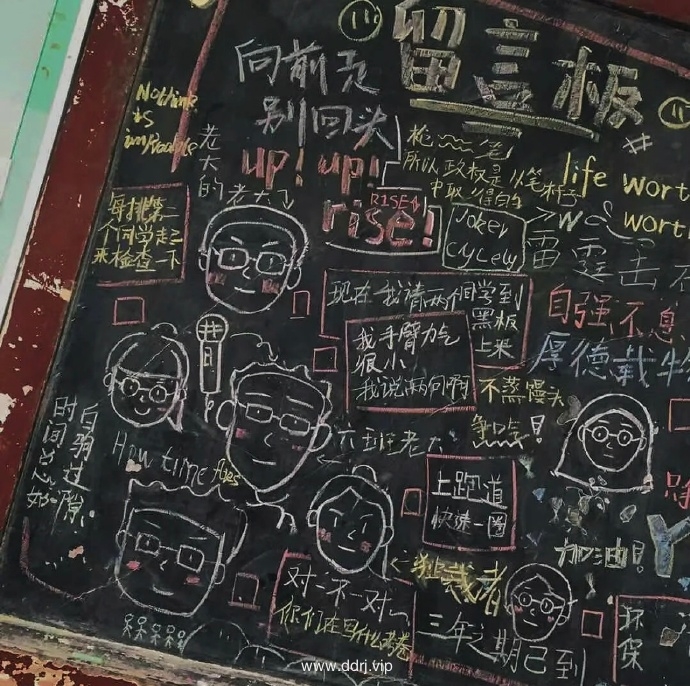 留言板
向前走
别回头
up! up!
RISE
rise!
Nothing
is
impossible
老大的老大
所以政权是从笔杆子
中取得的
life wort
wort
Joker
雷霆击不
自强不息
厚德载物
每排第一
个同学起立
来检查一下
现在我请两个同学到
黑板
上来
我手臂力气
很小
我说两句啊
不蒸馒头
争口气!
六班老大
白驹过隙
时间总如
How time flies
上跑道
快速一圈
加油!
独裁者
对一不一对
你们在写什么
三年之期已到
环保
www.ddrj.vip